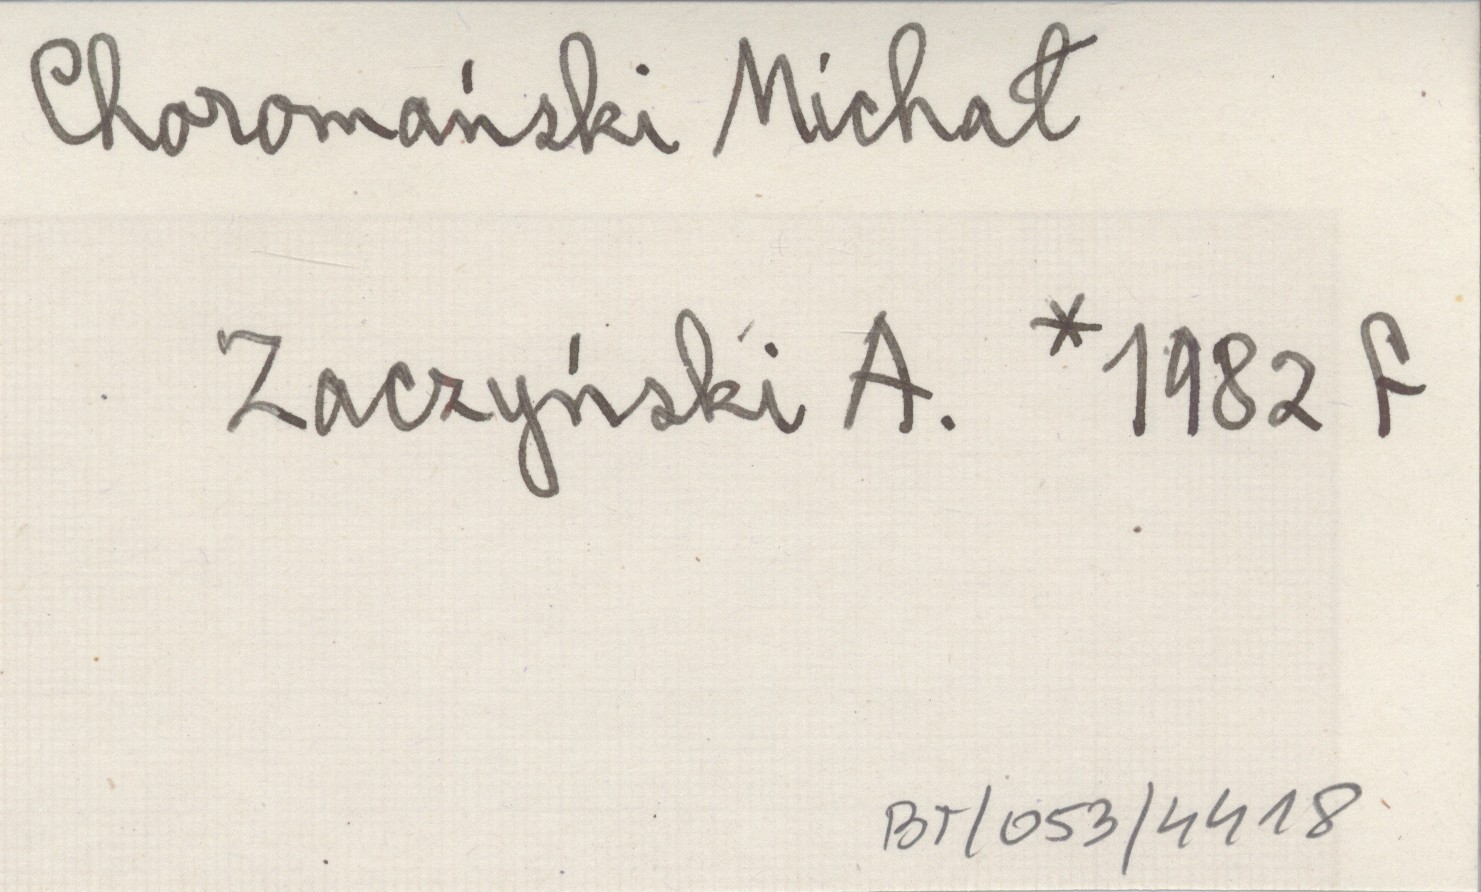 Choromański Michał
Zaczyński A. *1982 f
BT/053/4418